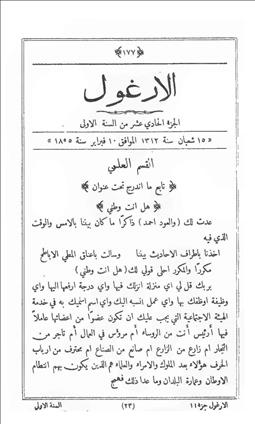 ﴿١٧٧﴾
الارغول
الجزء الحادي عشر من السنة الاولى
« ١٥ شعبان سنة ١٣١٢ الموافق ١٠ فبراير سنة ١٨٩٥ »
القسم العلمي
﴿ تابع ما اندرج تحت عنوان ﴾
﴿ هل انت وطني ﴾
عدت لك ( والعود احمد ) ذاكرًا ما كان بيننا بالامس والوقت
الذي فيه
اخذنا باطراف الاحاديث بيننا وسالت باعناق المطي الاباطح
مكررًا والمكرر احلى قولي لك ( هل انت وطني )
بربك قل لي اي منزلة انزلك فيها واي درجة ارفعها اليها واي
وظيفة اوظفك بها واي عمل انسبه اليك واي اسم اسميك به في خدمة
الهيئة الاجتماعية التي يجب عليك ان تكون عضوًا من اعضائها عاملاً
فيها أرئيس أنت من الروساء ام مروؤس في العمال أم تاجر من
التجار ام زارع من الزارع ام صانع من الصناع ام محترف من ارباب
الحرف هؤلاء بعد الملوك والامراء والعلماء هم الذين يكون بهم انتظام
الاوطان وعمارة البلدان وما عدا ذلك فهمج
الارغول جزء ١١ (٢٣) السنة الاولى